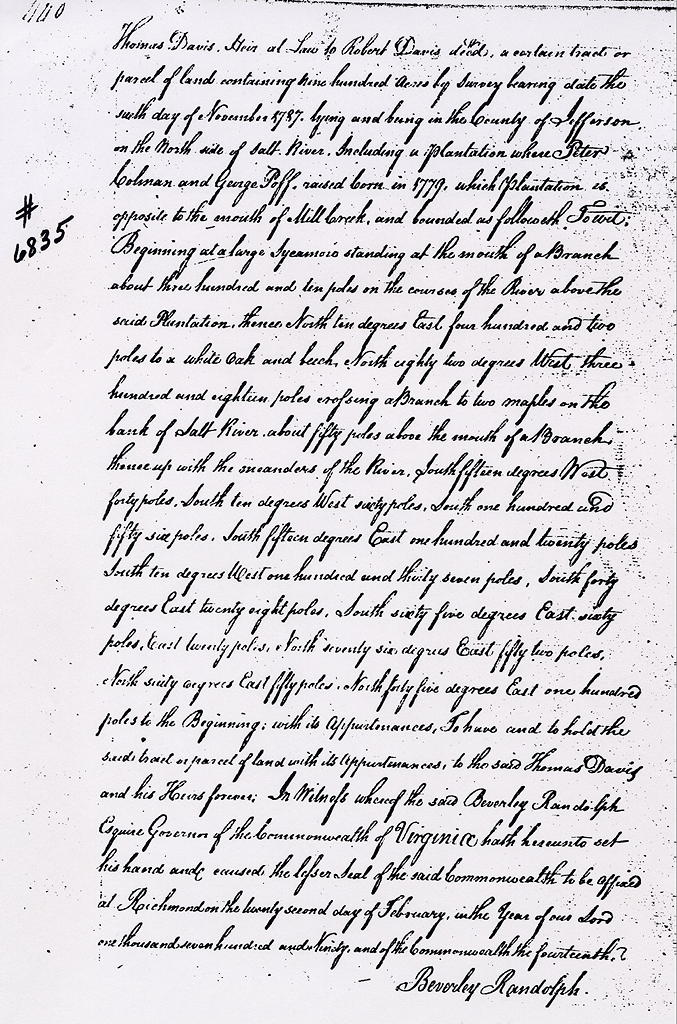 440
Thomas Davis, Heir at Law to Robert Davis decd. a certain tract or
parcel of land containing nine hundred Acres by Survey bearing date the
sixth day of November 1787. lying and being in the County of Jefferson
on the North side of Salt River. Including a Plantation where Peter
Colman and George Poff. raised corn in 1779. which Plantation is
opposite to the mouth of Mill Creek, and bounded as followeth Towit,
#
6835
Beginning at a large Sycamore standing at the mouth of a Branch
about three hundred and ten poles on the courses of the River above the
said Plantation, thence North ten degrees East four hundred and two
poles to a white Oak and beech, North eighty two degrees West three
hundred and eighteen poles crossing a Branch to two maples on the
bank of Salt River about fifty poles above the mouth of a Branch,
thence up with the meanders of the River, South fifteen degrees West
forty poles, South ten degrees West sixty poles, South one hundred and
fifty six poles, South fifteen degrees East one hundred and twenty poles
South ten degrees West one hundred and thirty seven poles, South forty
degrees East twenty eight poles, South sixty five degrees East sixty
poles, East twenty poles, North seventy six degrees East fifty two poles,
North sixty degrees East fifty poles, North forty five degrees East one hundred
poles to the Beginning; with its Appurtenances, To have and to hold the
said tract or parcel of land with its Appurtenances, to the said Thomas Davis
and his Heirs forever; In Witness whereof the said Beverley Randolph
Esquire Governor of the Commonwealth of Virginia hath hereunto set
his hand and caused the lesser Seal of the said Commonwealth to be affixed
at Richmond on the twenty second day of February, in the Year of our Lord
one thousand seven hundred and Ninety, and of the Commonwealth the fourteenth.
Beverley Randolph.